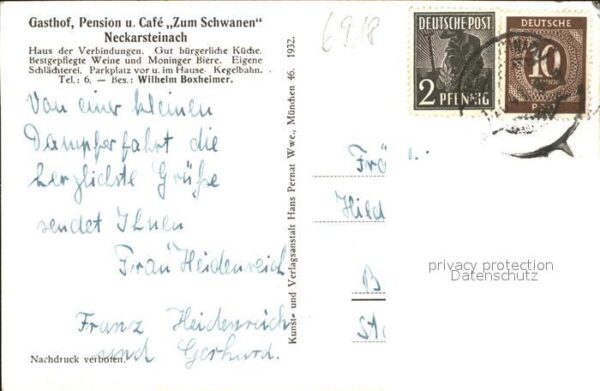 Gasthof, Pension u. Café „Zum Schwanen“
Neckarsteinach
Haus der Verbindungen. Gut bürgerliche Küche.
Bestgepflegte Weine und Moninger Biere. Eigene
Schlächterei. Parkplatz vor u. im Hause. Kegelbahn.
Tel.: 6. — Bes.: Wilhelm Boxheimer.
Von einer kleinen
Dampferfahrt die
herzlichste Grüße
sendet Ihnen
Frau Heidenreich
Franz Heidenreich
und Gerhard.
Nachdruck verboten.
Kunst- und Verlagsanstalt Hans Pernat Wwe, München 46. 1932.
6918
DEUTSCHE POST
2 PFENNIG
DEUTSCHE
10
PFENNIG
Post
Frö
Hild
B
privacy protection
Datenschutz